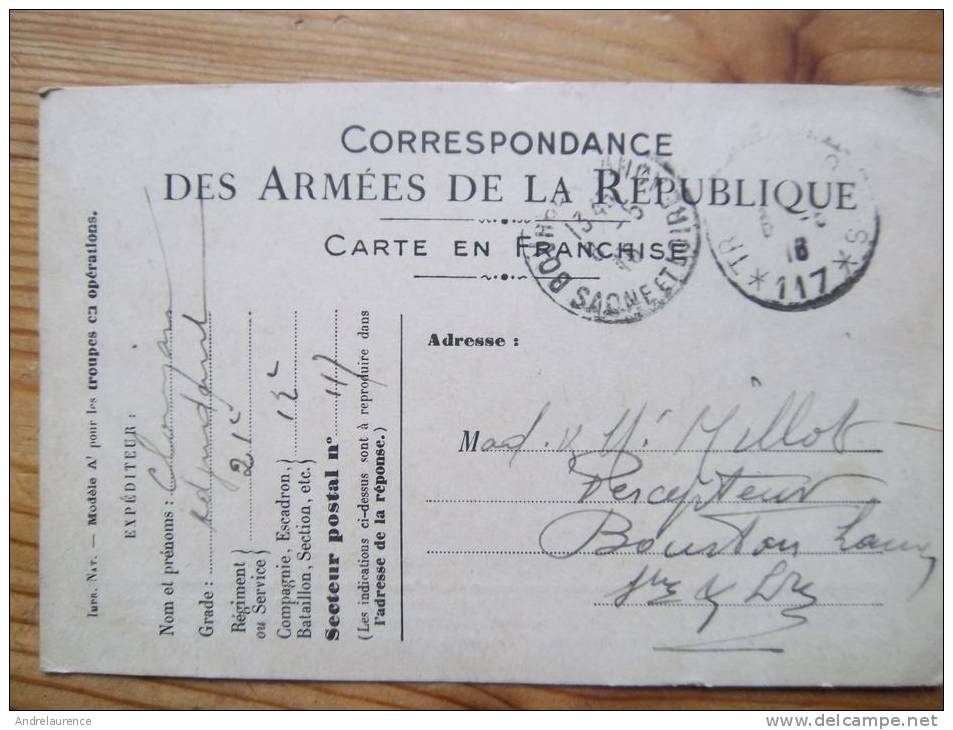 CORRESPONDANCE
DES ARMÉES DE LA RÉPUBLIQUE
CARTE EN FRANCHISE
SAONE ET LOIRE
13
TR
18
* 117 *
Impr. Nat. — Modèle A¹ pour les troupes en opérations.
EXPÉDITEUR :
Nom et prénoms :
Grade : adjudant
Régiment
ou Service } 21e
Compagnie, Escadron, }
Bataillon, Section, etc. } 12e
Secteur postal n° 117
(Les indications ci-dessus sont à reproduire dans
l'adresse de la réponse.)
Adresse :
Mad. & Mr Millot
Percepteur
Bourbon Lancy
Sne & Lre
Andrelaurence
www.delcampe.net